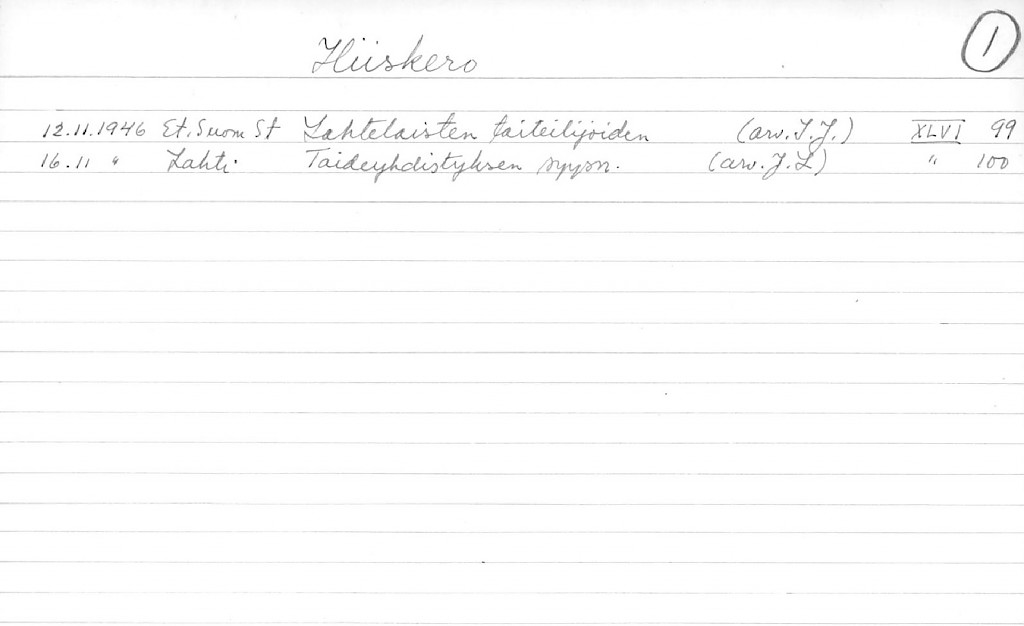 Hiiskero
1
12.11.1946 Et. Suom St Lahtelaisten taiteilijoiden (arv. T.J.) XLVI 99
16.11 " Lahti Taideyhdistyksen syysn. (arv. J.L) " 100